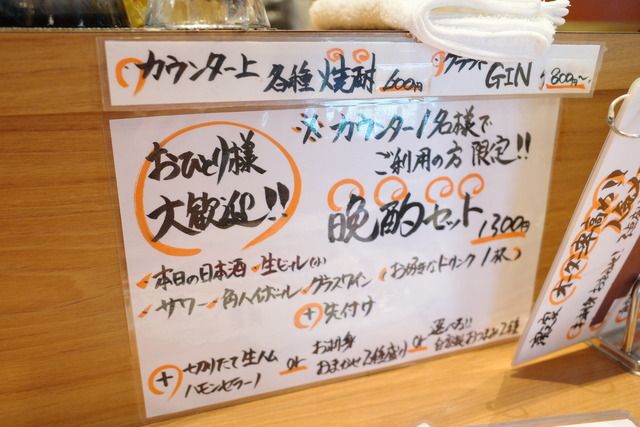 カウンター上 各種焼酎 600円 クラフト GIN 800円〜
おひとり様
大歓迎!!
※カウンター1名様で
ご利用の方 限定!!
晩酌セット 1300円
本日の日本酒・生ビール(小)
サワー・角ハイボール・グラスワイン (お好きなドリンク1杯)
+ 先付け
+ 切りたて生ハム
ハモンセラーノ
or お刺身
おまかせ2種盛り
or 選べる!!